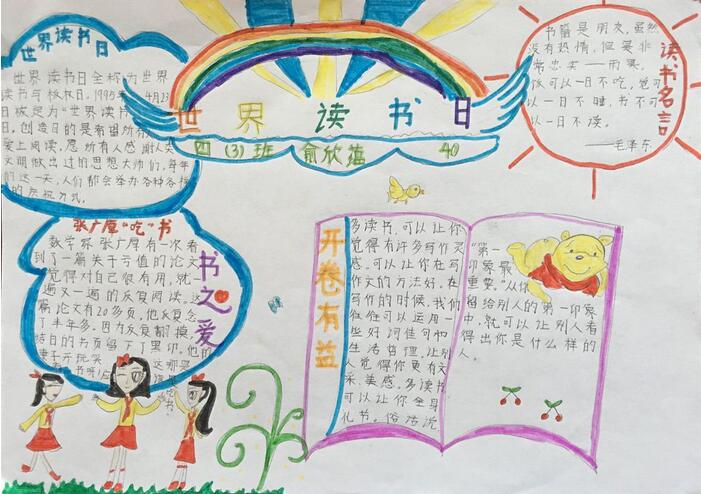 世界读书日
世界读书日全称为世界
读书与版权日,1995年 4月23
日被定为“世界读书
日,创造日的是希望所有
爱上阅读,愿所有人感谢人类
文明做出过的思想大师们,每年
们这一天,人们都会举办各种各样
的庆祝方式。
世界读书日
四(3)班 俞欣蕴 40
书籍是朋友,虽然
没有热情,但是非
常忠实——雨果。
饭可以一日不吃,觉可
以一日不睡,书不可
以一日不读。
——毛泽东
读书名言
张广厚“吃”书
数学家张广厚有一次看
到了一篇关于亏值的论文
觉得对自己很有用,就一
遍又一遍的反复阅读。这
篇论文有20多页,他反复念
了半年多。因为反复翻摸,
洁白的书页留下了黑印,他的
妻子开玩笑
这哪是
书之爱
开卷有益
多读书,可以让你
觉得有许多写作灵
感。可以让你在写
作文的方法好,在
写作的时候,我们
往往可以运用一
些好词佳句和
生活哲理,让别
人觉得你更有文
采、美感。多读书
可以让你全身
礼节。俗话说
“第一
印象最
重要。”从你
留给别人的第一印象
中,就可以让别人看
得出你是什么样的
人。